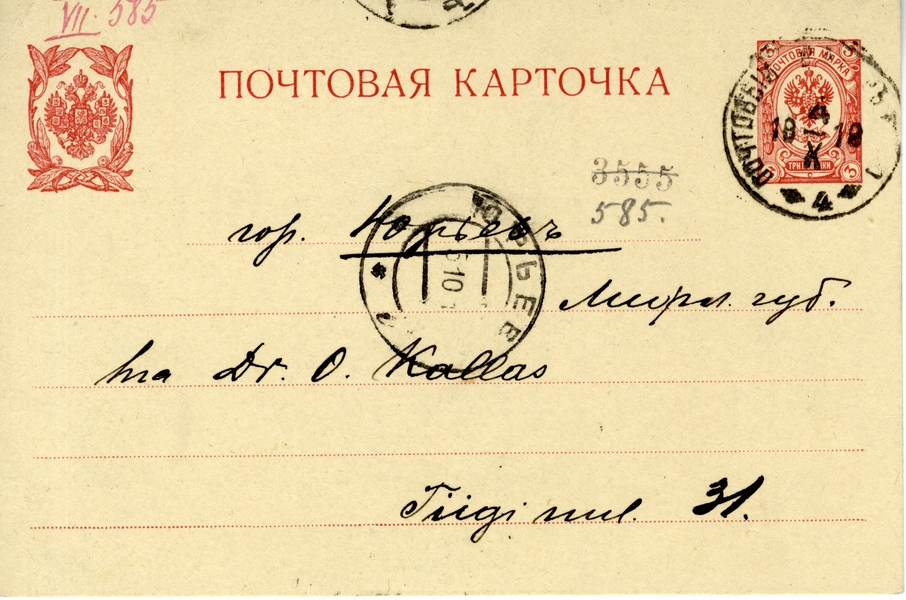 VII. 585
ПОЧТОВАЯ КАРТОЧКА
ПОЧТОВАЯ МАРКА
ПОЧТОВЫЙ
19 4 X 18
4
3555
585.
гор. Юрьевъ
ЮРЬЕВ
5 10
Лифл. губ.
hra Dr. O. Kallas
Tiigi uul. 31.